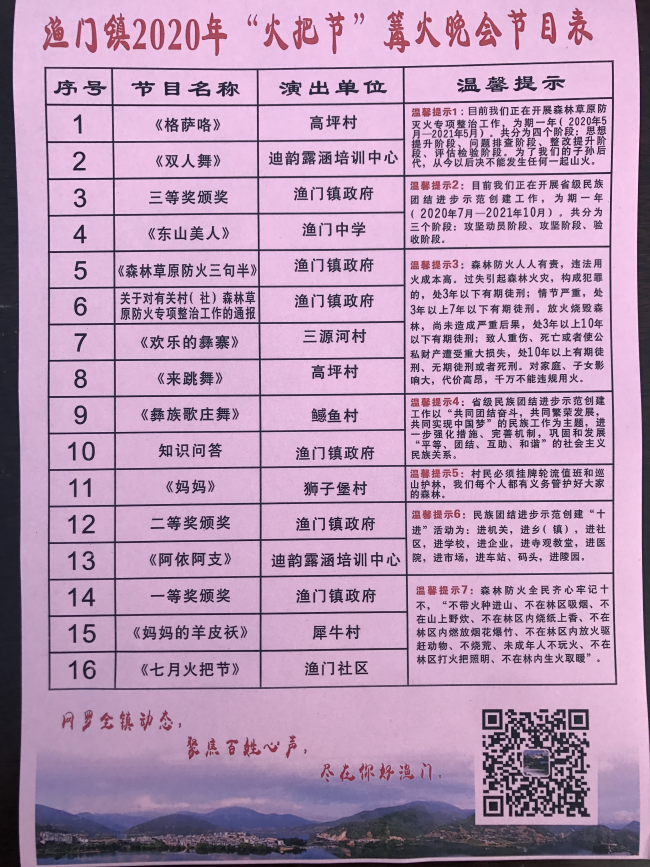 渔门镇2020年“火把节”篝火晚会节目表
序号 节目名称 演出单位 温馨提示
1 《格萨咯》 高坪村
2 《双人舞》 迪韵露涵培训中心
3 三等奖颁奖 渔门镇政府
4 《东山美人》 渔门中学
5 《森林草原防火三句半》 渔门镇政府
6 关于对有关村(社)森林草
原防火专项整治工作的通报 渔门镇政府
7 《欢乐的彝寨》 三源河村
8 《来跳舞》 高坪村
9 《彝族歌庄舞》 鳡鱼村
10 知识问答 渔门镇政府
11 《妈妈》 狮子堡村
12 二等奖颁奖 渔门镇政府
13 《阿依阿支》 迪韵露涵培训中心
14 一等奖颁奖 渔门镇政府
15 《妈妈的羊皮袄》 犀牛村
16 《七月火把节》 渔门社区
温馨提示1：目前我们正在开展森林草原防
灭火专项整治工作，为期一年(2020年5
月—2021年5月)。共分为四个阶段：思想
提升阶段、问题排查阶段、整改提升阶
段、评估检验阶段。为了我们的子孙后
代，从今以后决不能发生任何一起山火。
温馨提示2：目前我们正在开展省级民族
团结进步示范创建工作，为期一年
(2020年7月—2021年10月)。共分为
三个阶段：攻坚动员阶段、攻坚阶段、验
收阶段。
温馨提示3：森林防火人人有责，违法用
火成本高。过失引起森林火灾，构成犯罪
的，处3年以下有期徒刑；情节严重，处
3年以上7年以下有期徒刑。放火烧毁森
林，尚未造成严重后果，处3年以上10年
以下有期徒刑；致人重伤、死亡或者使公
私财产遭受重大损失，处10年以上有期徒
刑、无期徒刑或者死刑。对家庭、子女影
响大，代价高昂，千万不能违规用火。
温馨提示4：省级民族团结进步示范创建
工作以“共同团结奋斗，共同繁荣发展，
共同实现中国梦”的民族工作为主题，进
一步强化措施、完善机制，巩固和发展
“平等、团结、互助、和谐”的社会主义
民族关系。
温馨提示5：村民必须挂牌轮流值班和巡
山护林，我们每个人都有义务管护好大家
的森林。
温馨提示6：民族团结进步示范创建“十
进”活动为：进机关，进乡(镇)，进社
区，进学校，进企业，进寺观教堂，进医
院，进市场，进车站、码头，进陵园。
温馨提示7：森林防火全民齐心牢记十
不，“不带火种进山、不在林区吸烟、不
在山上野炊、不在林区内烧纸上香、不在
林区内燃放烟花爆竹、不在林区内放火驱
赶动物、不烧荒、未成年人不玩火、不在
林区打火把照明、不在林内生火取暖”。
网罗全镇动态，
聚焦百姓心声，
尽在你好渔门。